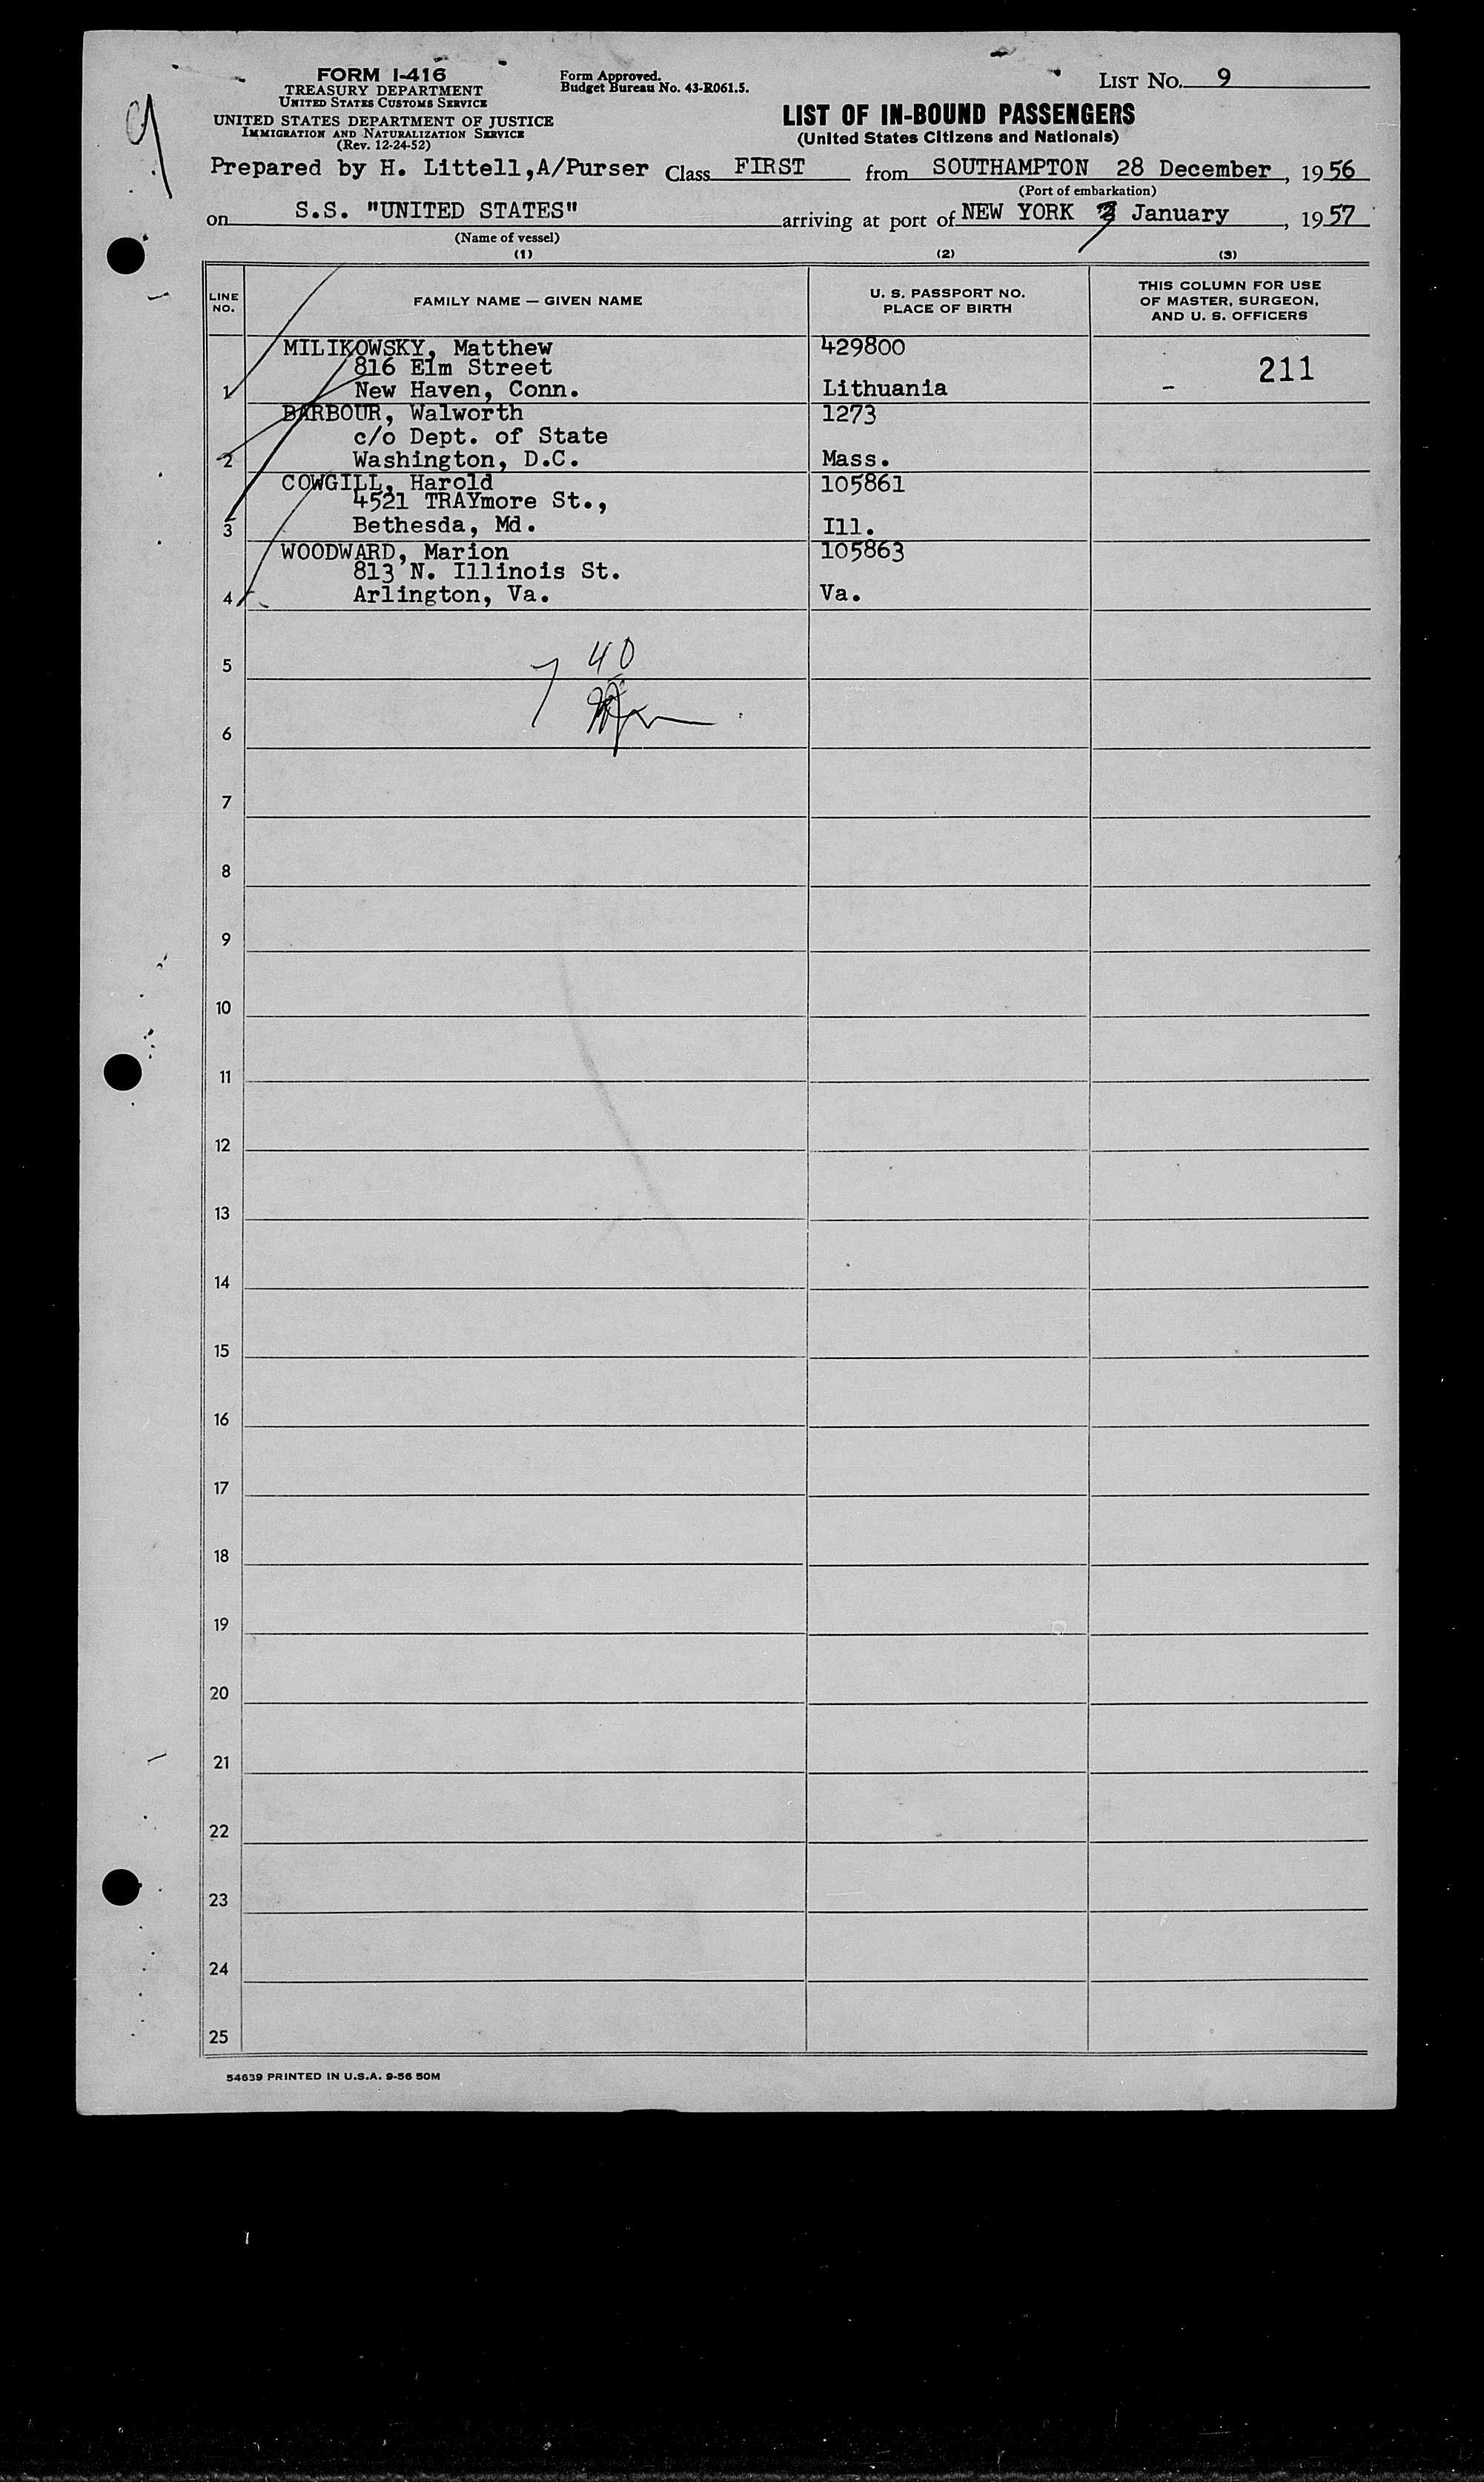 9
FORM I-416
TREASURY DEPARTMENT
UNITED STATES CUSTOMS SERVICE
UNITED STATES DEPARTMENT OF JUSTICE
IMMIGRATION AND NATURALIZATION SERVICE
(Rev. 12-24-52)
Form Approved.
Budget Bureau No. 43-R061.5.
LIST NO. 9
LIST OF IN-BOUND PASSENGERS
(United States Citizens and Nationals)
Prepared by H. Littell,A/Purser Class FIRST from SOUTHAMPTON 28 December, 1956
(Port of embarkation)
on S.S. "UNITED STATES" arriving at port of NEW YORK 3 January, 1957
(Name of vessel)
(1) (2) (3)
LINE NO. FAMILY NAME — GIVEN NAME U. S. PASSPORT NO. PLACE OF BIRTH THIS COLUMN FOR USE OF MASTER, SURGEON, AND U. S. OFFICERS
MILIKOWSKY, Matthew 429800
816 Elm Street 211
1 New Haven, Conn. Lithuania -
BARBOUR, Walworth 1273
c/o Dept. of State
2 Washington, D.C. Mass.
COWGILL, Harold 105861
4521 TRAYmore St.,
3 Bethesda, Md. Ill.
WOODWARD, Marion 105863
813 N. Illinois St.
4 Arlington, Va. Va.
5 7 40
6
7
8
9
10
11
12
13
14
15
16
17
18
19
20
21
22
23
24
25
54639 PRINTED IN U.S.A. 9-56 50M